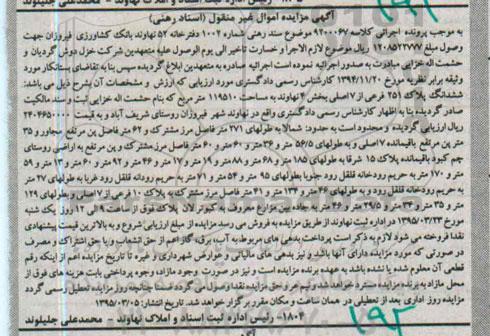 ۱۹۲
آگهی مزایده اموال غیر منقول (اسناد رهنی)
به موجب پرونده اجرائی کلاسه ۹۲۰۰۰۶۷ موضوع سند رهنی شماره ۱۰۰۲ دفترخانه ۵۲ نهاوند بانک کشاورزی فیروزان جهت
وصول مبلغ ۱۲۰۸۵۲۳۷۷۷ ریال موضوع لازم الاجرا و خسارت تاخیر الی یوم الوصول علیه متعهدین شرکت خزل دوش گردیان و
حشمت اله خزایی مبادرت به صدور اجرائیه نموده است اجرائیه صادره به متعهدین ابلاغ گردیده سپس بنا به تقاضای بستانکار مورد
وثیقه برابر نظریه مورخ ۱۳۹۴/۱۱/۲۰ کارشناس رسمی دادگستری مورد ارزیابی که ارزش و مشخصات آن بشرح ذیل می باشد:
ششدانگ پلاک ۲۵۱ فرعی از ۷ اصلی بخش ۴ نهاوند به مساحت ۱۱۹۵۱۰ متر مربع که بنام حشمت اله خزایی ثبت و سند مالکیت
صادر گردیده بنا به اظهار کارشناس رسمی دادگستری واقع در نهاوند شهر فیروزان روستای شریف آباد و به قیمت ۲۴۰۴۶۵۰۰۰۰
ریال ارزیابی گردیده و محدود است به حدود: شمالا به طولهای ۲۷۱ متر فاصل مرز مشترک و ۶۲ متر فاصل پن مرتفع مجاور و ۳۵
متر پن مرتفع باقیمانده ۷ اصلی و به طولهای ۵۶/۵ متر و ۳۶ متر و ۶۰ متر و ۱۰۰ متر فاصل مرز مشترک و پن مرتفع به اراضی روستای
چم کبود باقیمانده پلاک ۱۵ شرقا به طولهای ۱۸۵ متر و ۶۸ متر و ۸۸ متر و ۱۹ متر و ۱۷ متر و ۴۶ متر و ۹۲ متر و ۶۰ متر و ۱۳ متر و ۵۹
متر و ۱۷۰ متر به حریم رودخانه قلقل رود جنوبا بطولهای ۹۵ متر و ۵۴ متر و ۷۱ متر به حریم رودانه قلقل رود غربا به طولهای ۲۷ متر
به حریم رودخانه قلقل رود و به طولهای ۴۶ متر و ۱۳۴ متر و ۴۱ متر فاصل مرز مشترک به پلاک ۱۰ فرعی از ۷ اصلی و بطولهای ۱۲۹
متر و ۳۵ متر و ۳۳ متر و ۲۹/۵ متر و ۴۶ متر به جاده بین مزارع معروف به کبوتر لان پلاک فوق از ساعت ۹ الی ۱۲ روز یک شنبه
مورخ ۱۳۹۵/۰۳/۲۳ در اداره ثبت نهاوند از طریق مزایده به فروش می رسد مزایده از مبلغ ارزیابی شروع و به بالاترین قیمت پیشنهادی
نقدا فروخته می شود لازم به ذکر است پرداخت بدهی های مربوط به آب، برق، گاز اعم از حق انشعاب و یا حق اشتراک و مصرف
در صورتی که مورد مزایده دارای آنها باشد و نیز بدهی های مالیاتی و عوارض شهرداری و غیره تا تاریخ مزایده اعم از اینکه رقم
قطعی آن معلوم شده یا نشده باشد به عهده برنده مزایده است و نیز در صورت وجود مازاد، وجوه پرداختی بابت هزینه های فوق از
محل مازاد به برنده مزایده مسترد خواهد شد و نیم عشر و حق مزایده نقدا وصول می گردد ضمنا چنانچه روز مزایده تعطیل رسمی گردد
مزایده روز اداری بعد از تعطیلی در همان ساعت و مکان مقرر برگزار خواهد شد. تاریخ انتشار: ۱۳۹۵/۰۳/۰۵
۱۸۰۴- رئیس اداره ثبت اسناد و املاک نهاوند - محمدعلی جلیلوند
۱۹۲